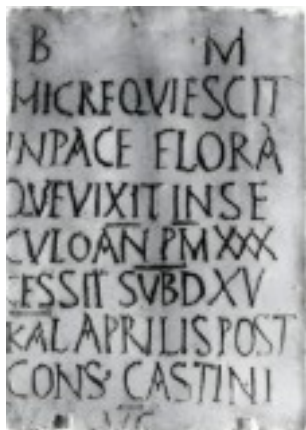 B M
HICREQVIESCIT
INPACE FLORA
QVEVIXIT INSE
CVLOAN PM XXX
CESSIT SVBD XV
KAL APRILIS POST
CONS' CASTINI
VC